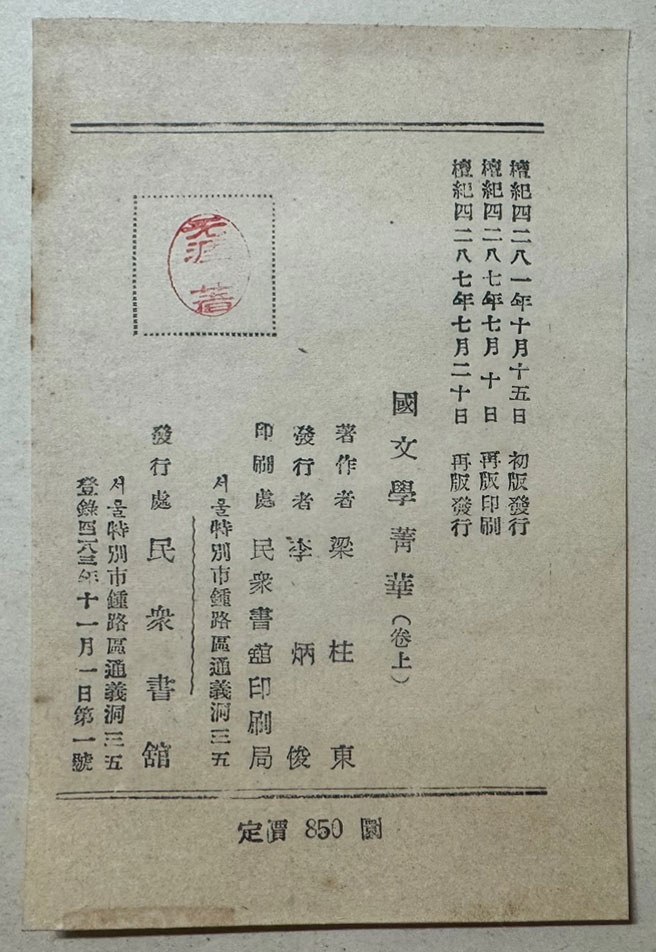 檀紀四二八一年十月十五日 初版發行
檀紀四二八七年七月十日 再版印刷
檀紀四二八七年七月二十日 再版發行
國文學菁華(卷上)
著作者 梁柱東
發行者 李炳俊
印刷處 民衆書舘印刷局
서울特別市鍾路區通義洞三五
發行處 民衆書舘
서울特別市鍾路區通義洞三五
登錄四二八三年十一月一日第一號
无涯
著
定價 850 圜